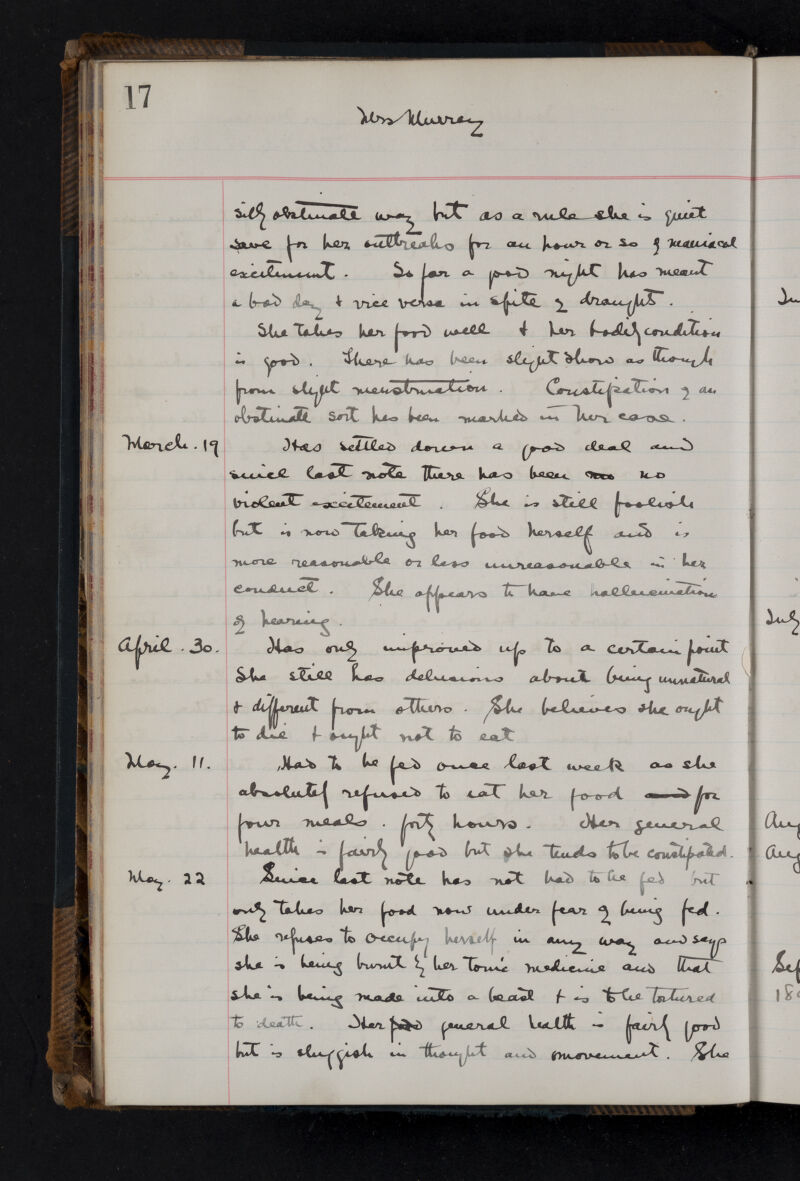 17
Mrs Murray
silly obstinate way but as a rule she is quiet
save for her outbreaks for an hour or so of maniacal
excitement. So far a good night has meant
a bad day & vice versa in spite of draught.
She takes her food well & her bodily condition
is good. There has been slight show as though
from slight menstruation. Constipation of an
obstinate sort has been marked in her case.
March. 19 Has settled down a good deal and
since last note there has been no
violent excitement. She is still foolish
but is now taking her food herself and is
more reasonable or less unreasonable in her
conduct. She appears to have hallucination
of hearing.
April. 30. Has only improved up to a certain point
She still has delusions about being unnatural
& different from others. She believes she ought
to die & ought not to eat
May. 11. Had to be fed once last week as she
absolutely refused to eat her food and for
four meals. forty hours. Her general
health is fairly good but she tends to be constipated.
May. 22 Since last note has not had to be fed but
only takes her food now under fear of being fed.
She refuses to occupy herself in any way and says
she is being burnt by her tonic medicine and that
she is being made into a beast & is to be tortured
to death. Her food general health is fairly good
but is sluggish in thought and movement. She
July
Aug
Aug